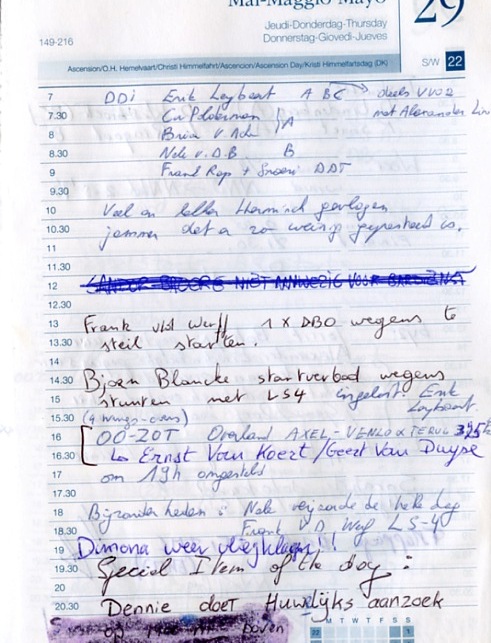 Mai-Maggio-Mayo
29
Jeudi-Donderdag-Thursday
Donnerstag-Giovedi-Jueves
149-216
Ascension/O.H. Hemelvaart/Christi Himmelfahrt/Ascencion/Ascension Day/Kristi Himmelfartsdag (DK)
S/W 22
7 DDI Erik Leybaert A BC deels VVO2
7.30 met Alexander
8 A
8.30 Nele v.D.B B
9 Frank Rap + DDT
9.30
10 Veel en lekker thermisch gevlogen
10.30 jammer dat er zo weinig gepresteerd is.
11
11.30
12 NIET AANWEZIG VOOR
12.30
13 Frank vld Werff 1 x DBO wegens te
13.30 steil starten.
14
14.30 Bjorn Blancke startverbod wegens
15 stunten met LS4 Erik
Leybaert
15.30
16 OO-ZOT Overland AXEL-VENLO & TERUG
16.30 Ernst Van Koert / Geert Van Duyse
17 om 19h omgesteld
17.30
18 Bijzonderheden : Nele de hele dag
18.30 Frank V.D. LS-4
19 Dimona weer vliegklaar!!
19.30 Special Item of the day :
20
20.30 Dennie doet Huwelijks aanzoek
boven
M T W T F S S
22